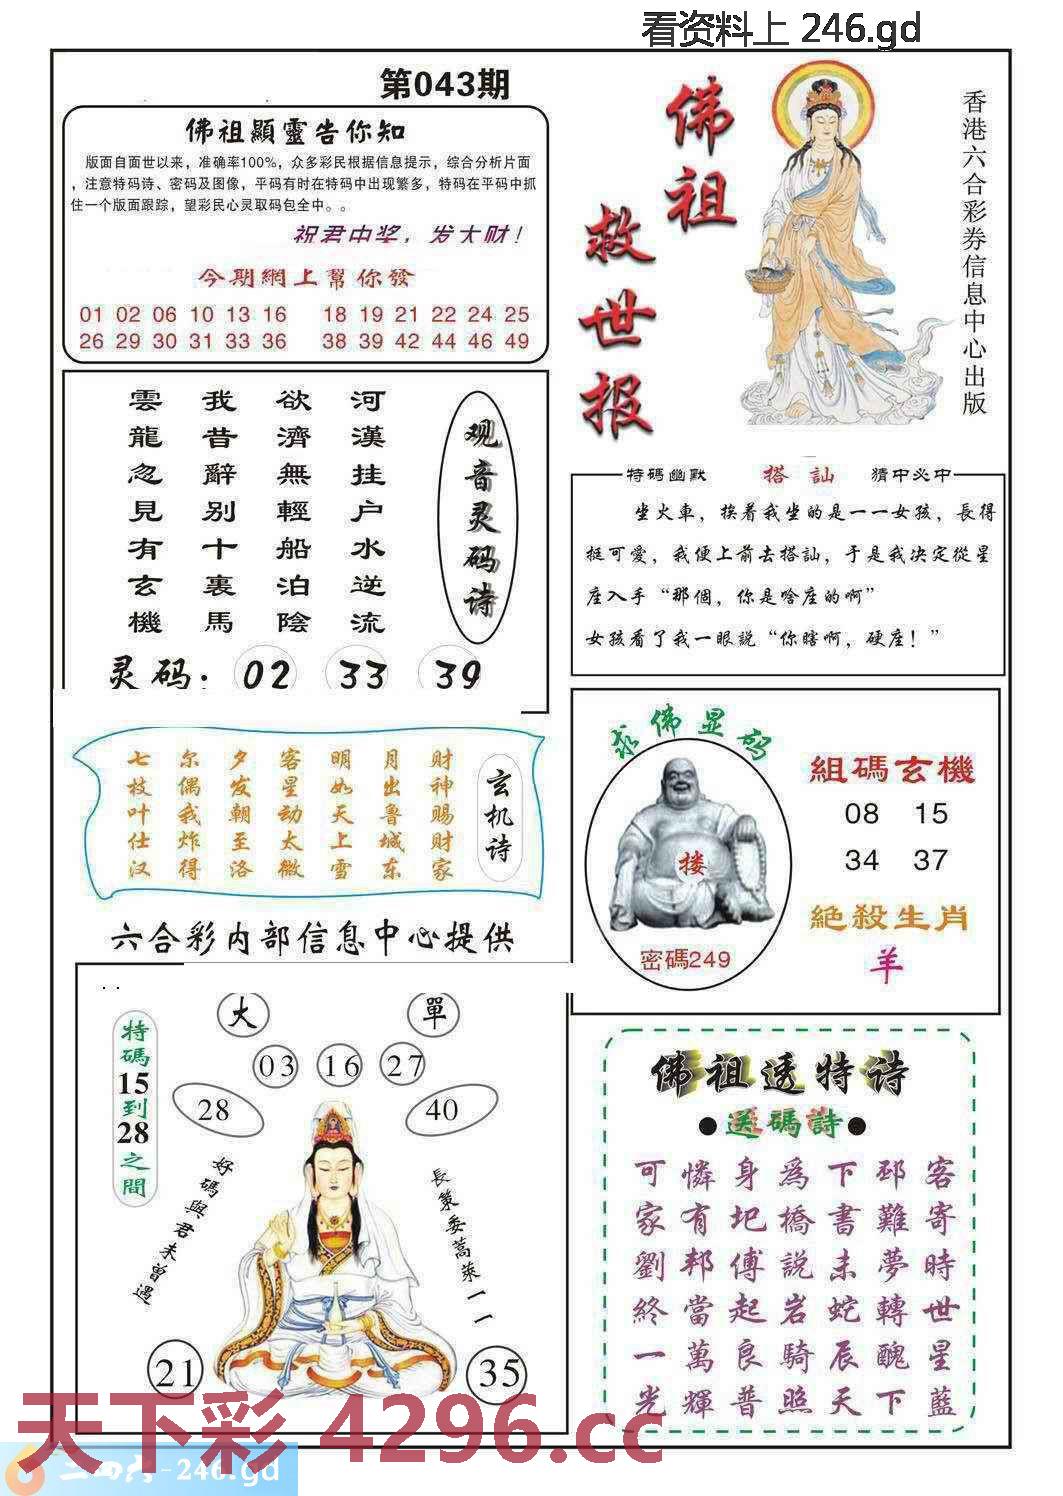 看资料上 246.gd
第043期
佛祖顯靈告你知
版面自面世以来，准确率100%，众多彩民根据信息提示，综合分析片面
，注意特码诗、密码及图像，平码有时在特码中出现繁多，特码在平码中抓
住一个版面跟踪，望彩民心灵取码包全中。。
祝君中奖，发大财！
今期網上幫你發
01 02 06 10 13 16 18 19 21 22 24 25
26 29 30 31 33 36 38 39 42 44 46 49
佛祖
救世报
香港六合彩券信息中心出版
雲 我 欲 河
龍 昔 濟 漢
忽 辭 無 挂
見 别 輕 户
有 十 船 水
玄 裏 泊 逆
機 馬 陰 流
观音灵码诗
灵码：02 33 39
特码幽默 搭訕 猜中必中
坐火車，挨着我坐的是一一女孩，長得
挺可愛，我便上前去搭訕，于是我决定從星
座入手“那個，你是啥座的啊”
女孩看了我一眼說“你瞎啊，硬座！”
七 尔 夕 客 明 月 财
枝 偶 发 星 如 出 神
叶 我 朝 动 天 鲁 赐
仕 炸 至 太 上 城 财
汉 得 洛 微 雪 东 家
玄机诗
求佛显码
搂
密碼249
組碼玄機
08 15
34 37
絕殺生肖
羊
六合彩内部信息中心提供
大 單
03 16 27
28 40
特碼15到28之間
好碼與君未曾遇
長策委蒿萊一一
21 35
佛祖透特诗
●送碼詩●
可 憐 身 爲 下 邳 客
家 有 圯 橋 書 難 寄
劉 邦 傅 説 未 夢 時
終 當 起 岩 蛇 轉 世
一 萬 良 騎 辰 醜 星
光 輝 普 照 天 下 藍
天下彩 4296.cc
二四六-246.gd